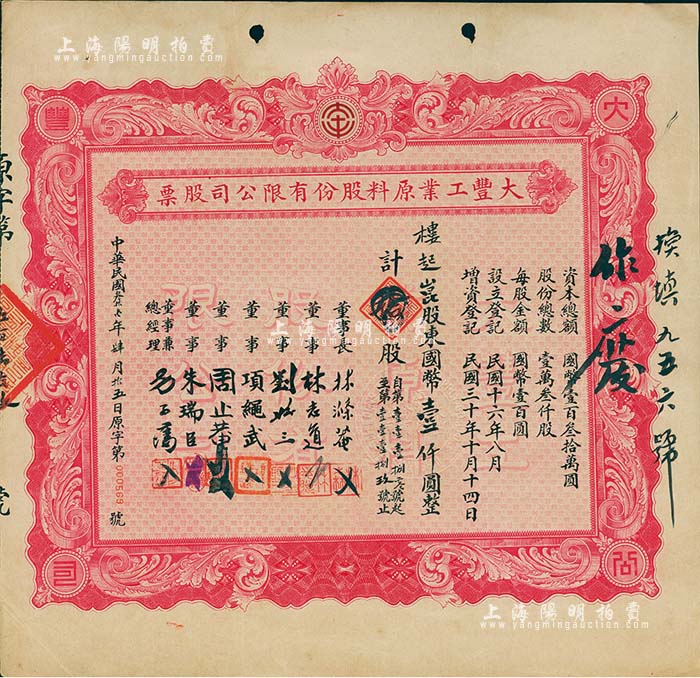 上海陽明拍賣
www.yangmingauction.com
上海陽明拍賣
www.yangmingauction.com
大豐工業原料股份有限公司股票
大
豐
公
司
換填九五六號
作廢
資本總額 國幣壹百叁拾萬圓
股份總數 壹萬叁仟股
每股金額 國幣壹百圓
設立登記 民國十六年八月
增資登記 民國三十年十月十四日
樓起崑股東國幣壹仟圓整
計 股
自第壹壹壹捌 號起
至第壹壹壹捌玖號止
董事長 林滌菴
董事 林 道
董事 劉 三
董事 項繩武
董事 周止黃
董事 朱瑞臣
董事兼總經理
中華民國 年肆月拾五日原字第0000569號
原字第
號
上海陽明拍賣
www.yangmingauction.com